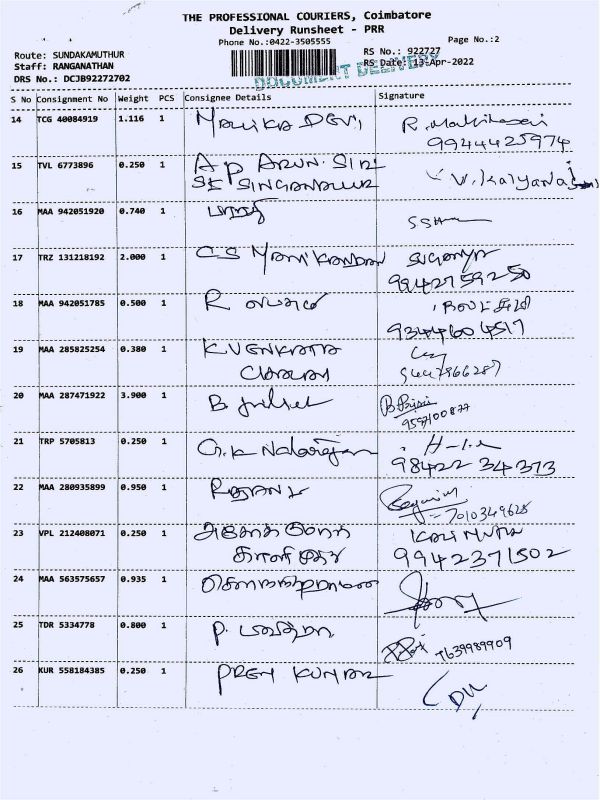 THE PROFESSIONAL COURIERS, Coimbatore
Delivery Runsheet - PRR
Phone No.:0422-3505555
Page No.:2
Route: SUNDAKAMUTHUR
RS No.: 922727
Staff: RANGANATHAN
RS Date: 13-Apr-2022
DRS No.: DCJB92272702
DOCUMENT DELIVERY
S No Consignment No Weight PCS Consignee Details Signature
14 TCG 40084919 1.116 1 MALLIKA DEVI R.
9944425974
15 TVL 6773896 0.250 1 AP ARUN SIR
SE SINGANALLUR V. Kalyana
16 MAA 942051920 0.740 1
17 TRZ 131218192 2.000 1 CS MANIKANDAN SUGANYA
9942759250
18 MAA 942051785 0.500 1 R
9344604517
19 MAA 285825254 0.380 1 K VENKATA
CHALAM 9447966287
20 MAA 287471922 3.900 1 B
9597100877
21 TRP 5705813 0.250 1 G.K Natarajan
98422 34373
22 MAA 280935899 0.950 1
7010349625
23 VPL 212408071 0.250 1 அசோக குமார் KALI MUTHU
காளி முத்து 9942371502
24 MAA 563575657 0.935 1
25 TDR 5334778 0.800 1 P. பவித்ரா
7639989909
26 KUR 558184385 0.250 1 PREM KUMAR